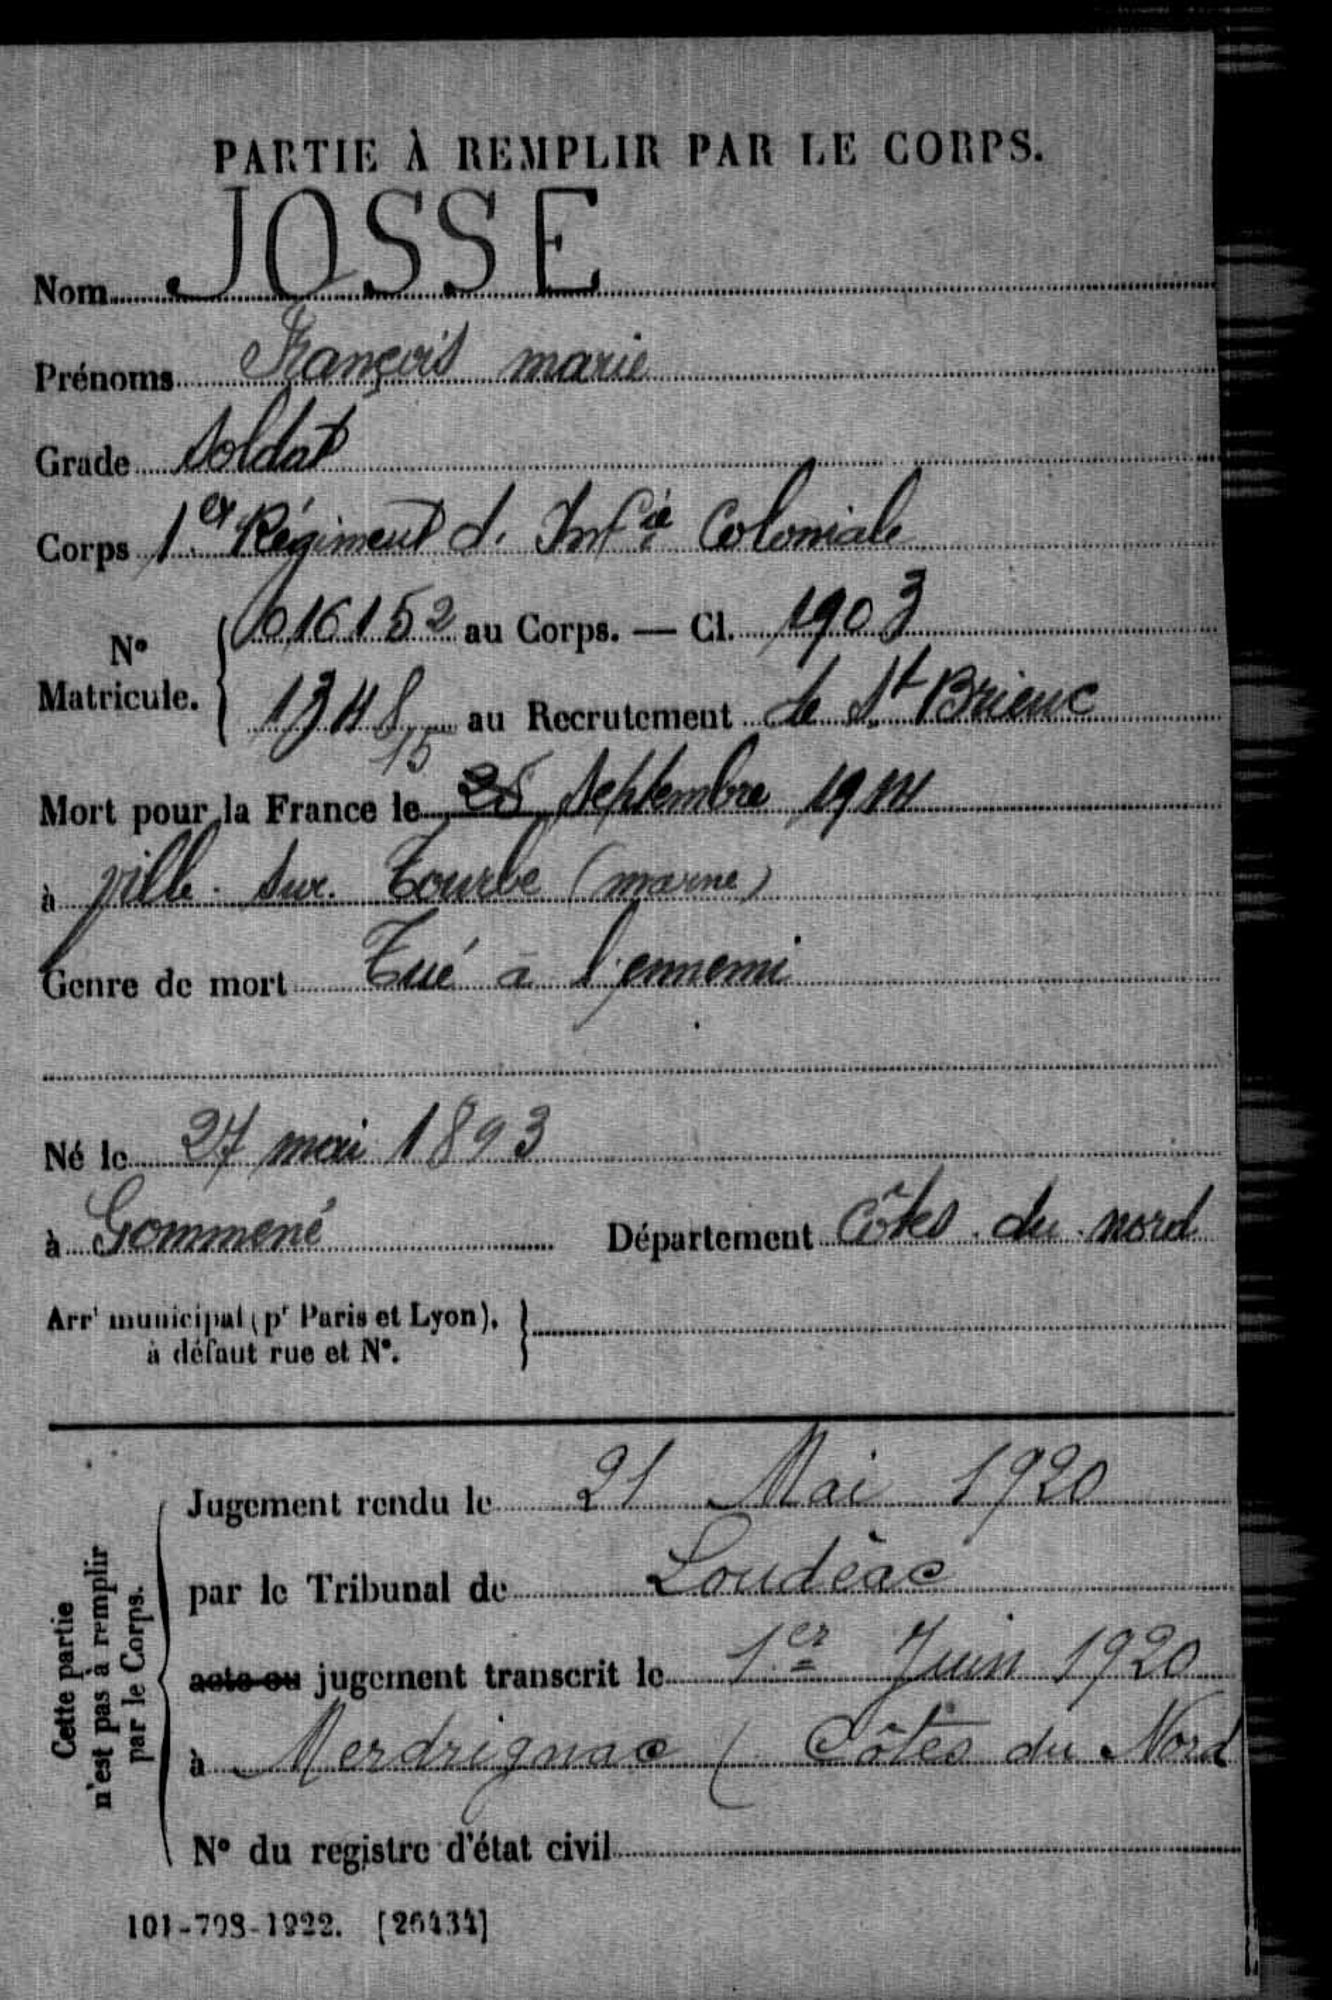 PARTIE À REMPLIR PAR LE CORPS.
Nom JOSSE
Prénoms François marie
Grade Soldat
Corps 1er Régiment d. Infie Coloniale
No Matricule. 016152 au Corps. — Cl. 1903
1348 au Recrutement de St Brieuc
15
Mort pour la France le Septembre 1914
à ville sur Tourbe (marne)
Genre de mort Tué à l'ennemi
Né le 27 mai 1893
à Gommené Département Côtes du nord
Arrt municipal (pr Paris et Lyon),
à défaut rue et No.
Cette partie
n'est pas à remplir
par le Corps.
Jugement rendu le 21 Mai 1920
par le Tribunal de Loudéac
acte ou jugement transcrit le 1er Juin 1920
à Merdrignac ( Côtes du Nord
No du registre d'état civil
101-708-1922. [26434]